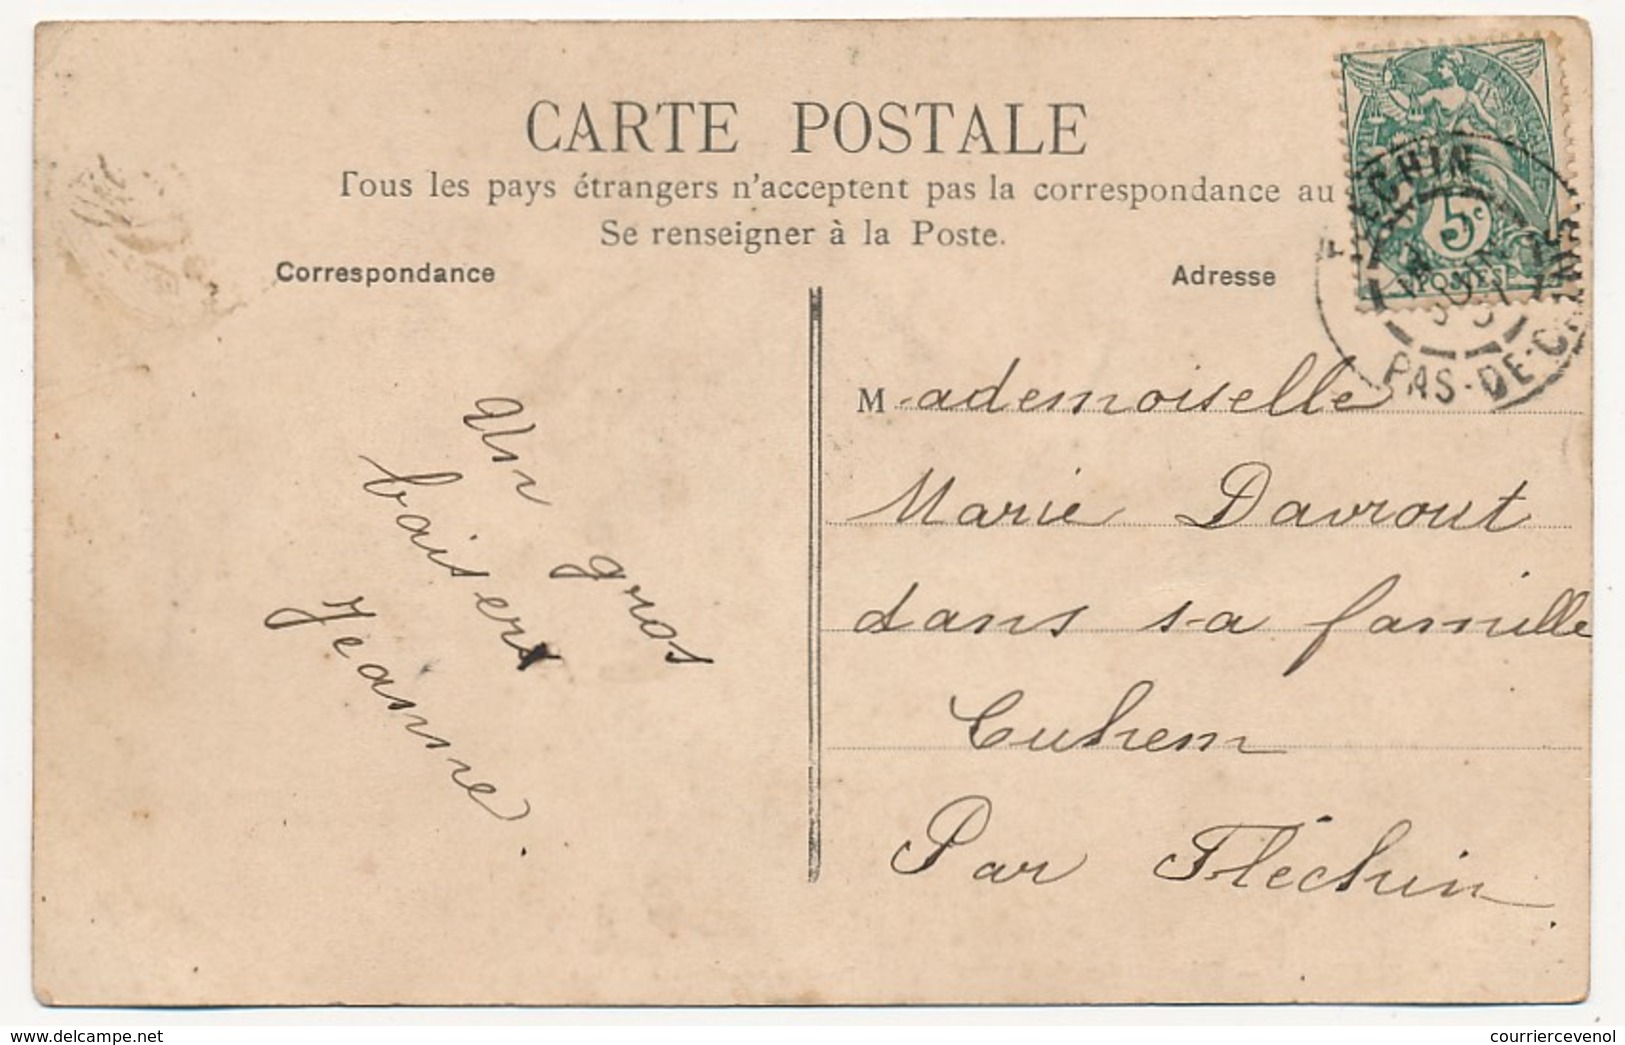 CARTE POSTALE
Tous les pays étrangers n'acceptent pas la correspondance au
Se renseigner à la Poste.
Correspondance
Adresse
FLECHIN
PAS-DE-CALAIS
5c
POSTES
Un gros
baiser
Jeanne.
Mademoiselle
Marie Davrout
dans sa famille
Cuhem
Par Fléchin.
delcampe.net
courriercevenol